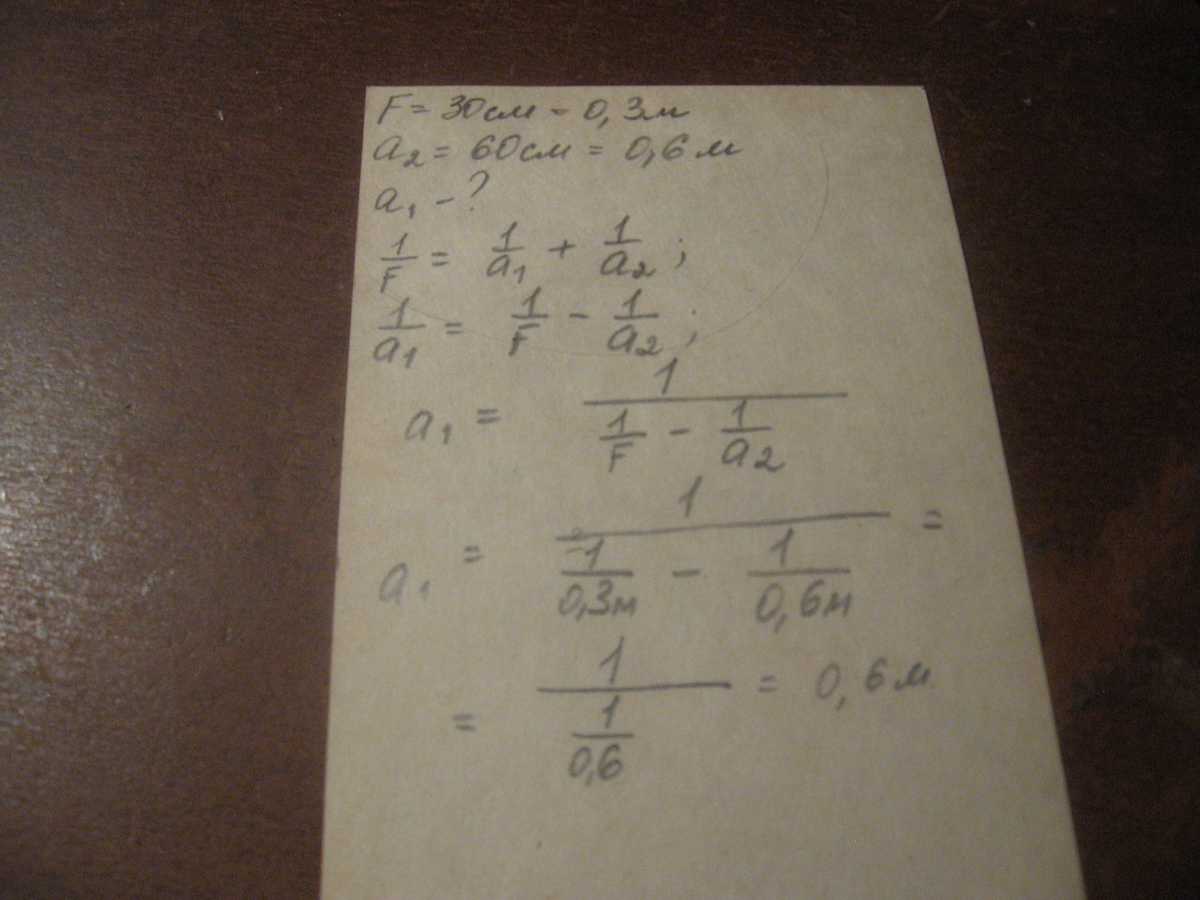 F = 30см - 0,3м
a₂ = 60см = 0,6м
a₁ - ?
1/F = 1/a₁ + 1/a₂ ;
1/a₁ = 1/F - 1/a₂ ;
a₁ = 1/(1/F - 1/a₂)
a₁ = 1/(1/0,3м - 1/0,6м) =
= 1/(1/0,6) = 0,6м